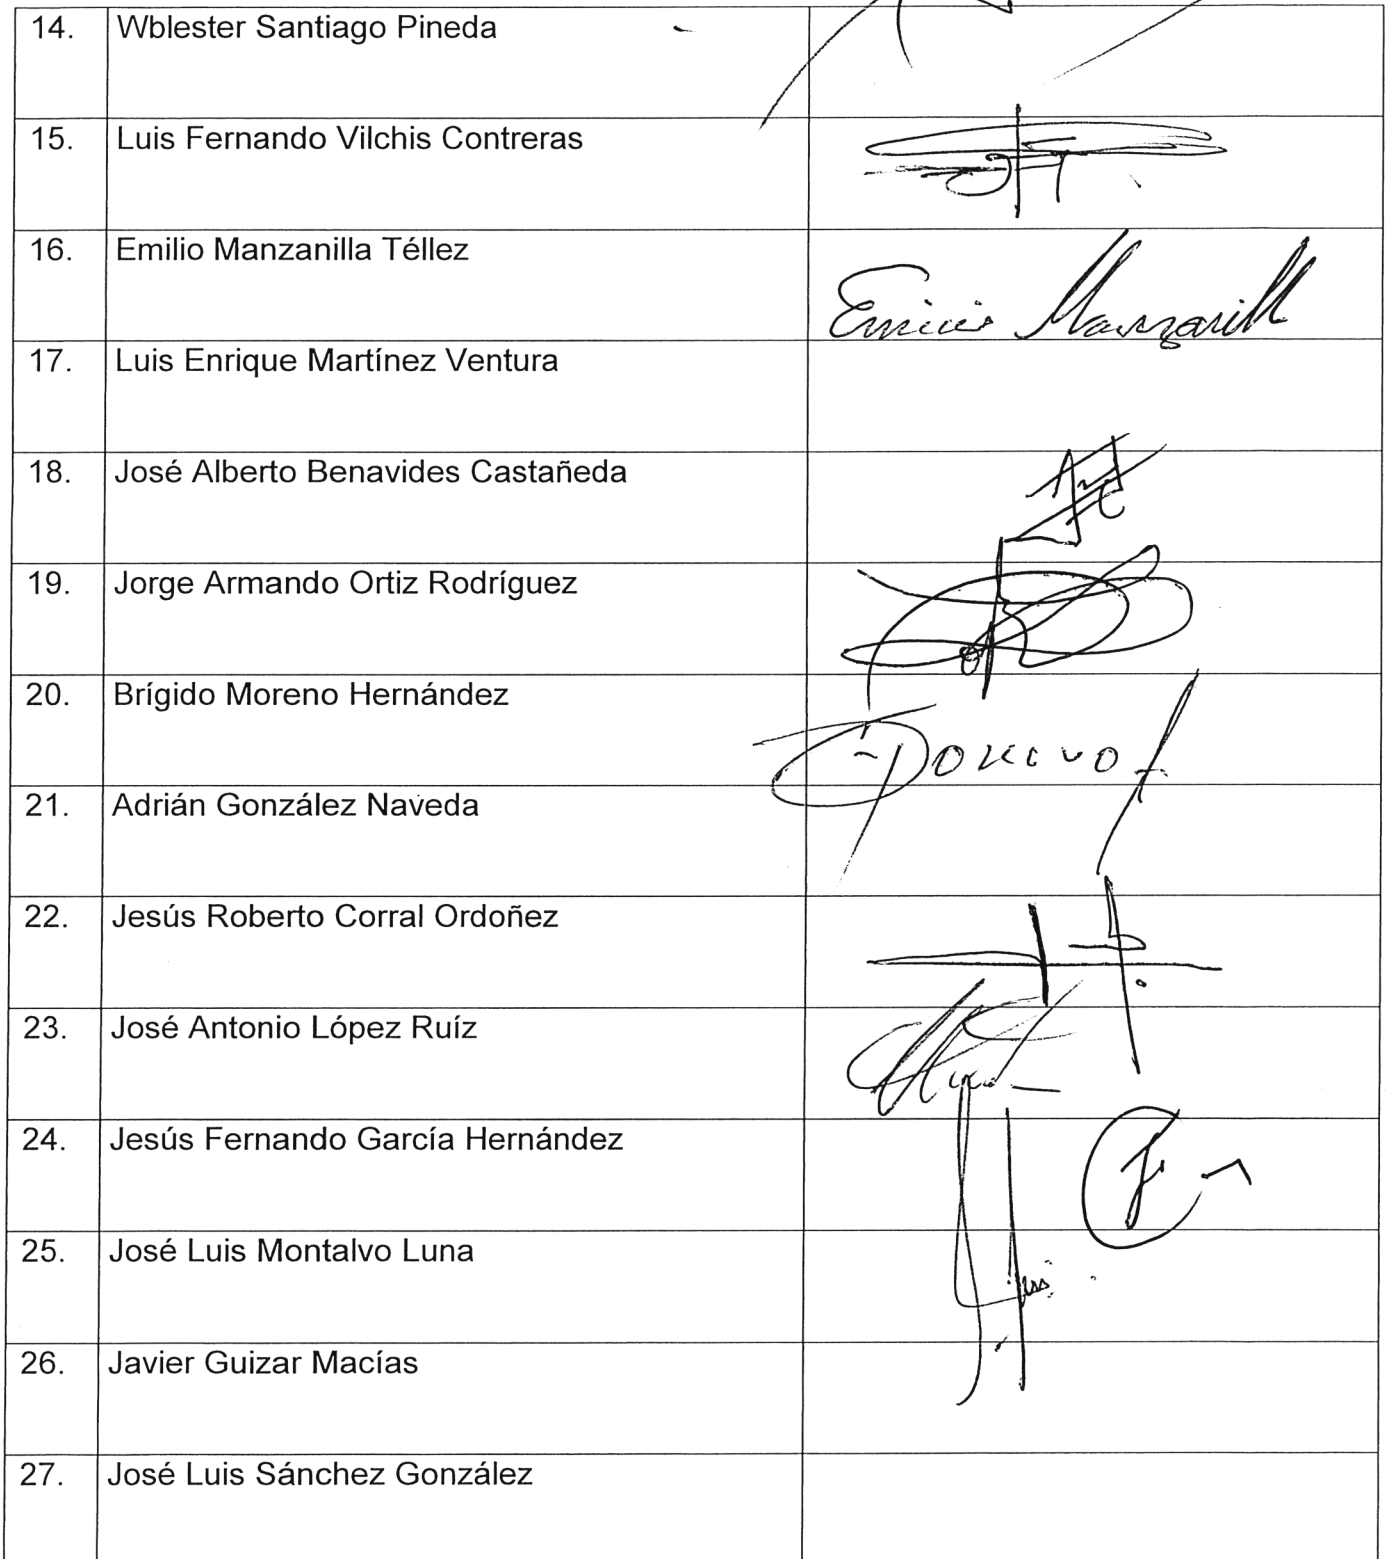 14. Wblester Santiago Pineda
15. Luis Fernando Vilchis Contreras
16. Emilio Manzanilla Téllez
17. Luis Enrique Martínez Ventura
18. José Alberto Benavides Castañeda
19. Jorge Armando Ortiz Rodríguez
20. Brígido Moreno Hernández
21. Adrián González Naveda
22. Jesús Roberto Corral Ordoñez
23. José Antonio López Ruíz
24. Jesús Fernando García Hernández
25. José Luis Montalvo Luna
26. Javier Guizar Macías
27. José Luis Sánchez González